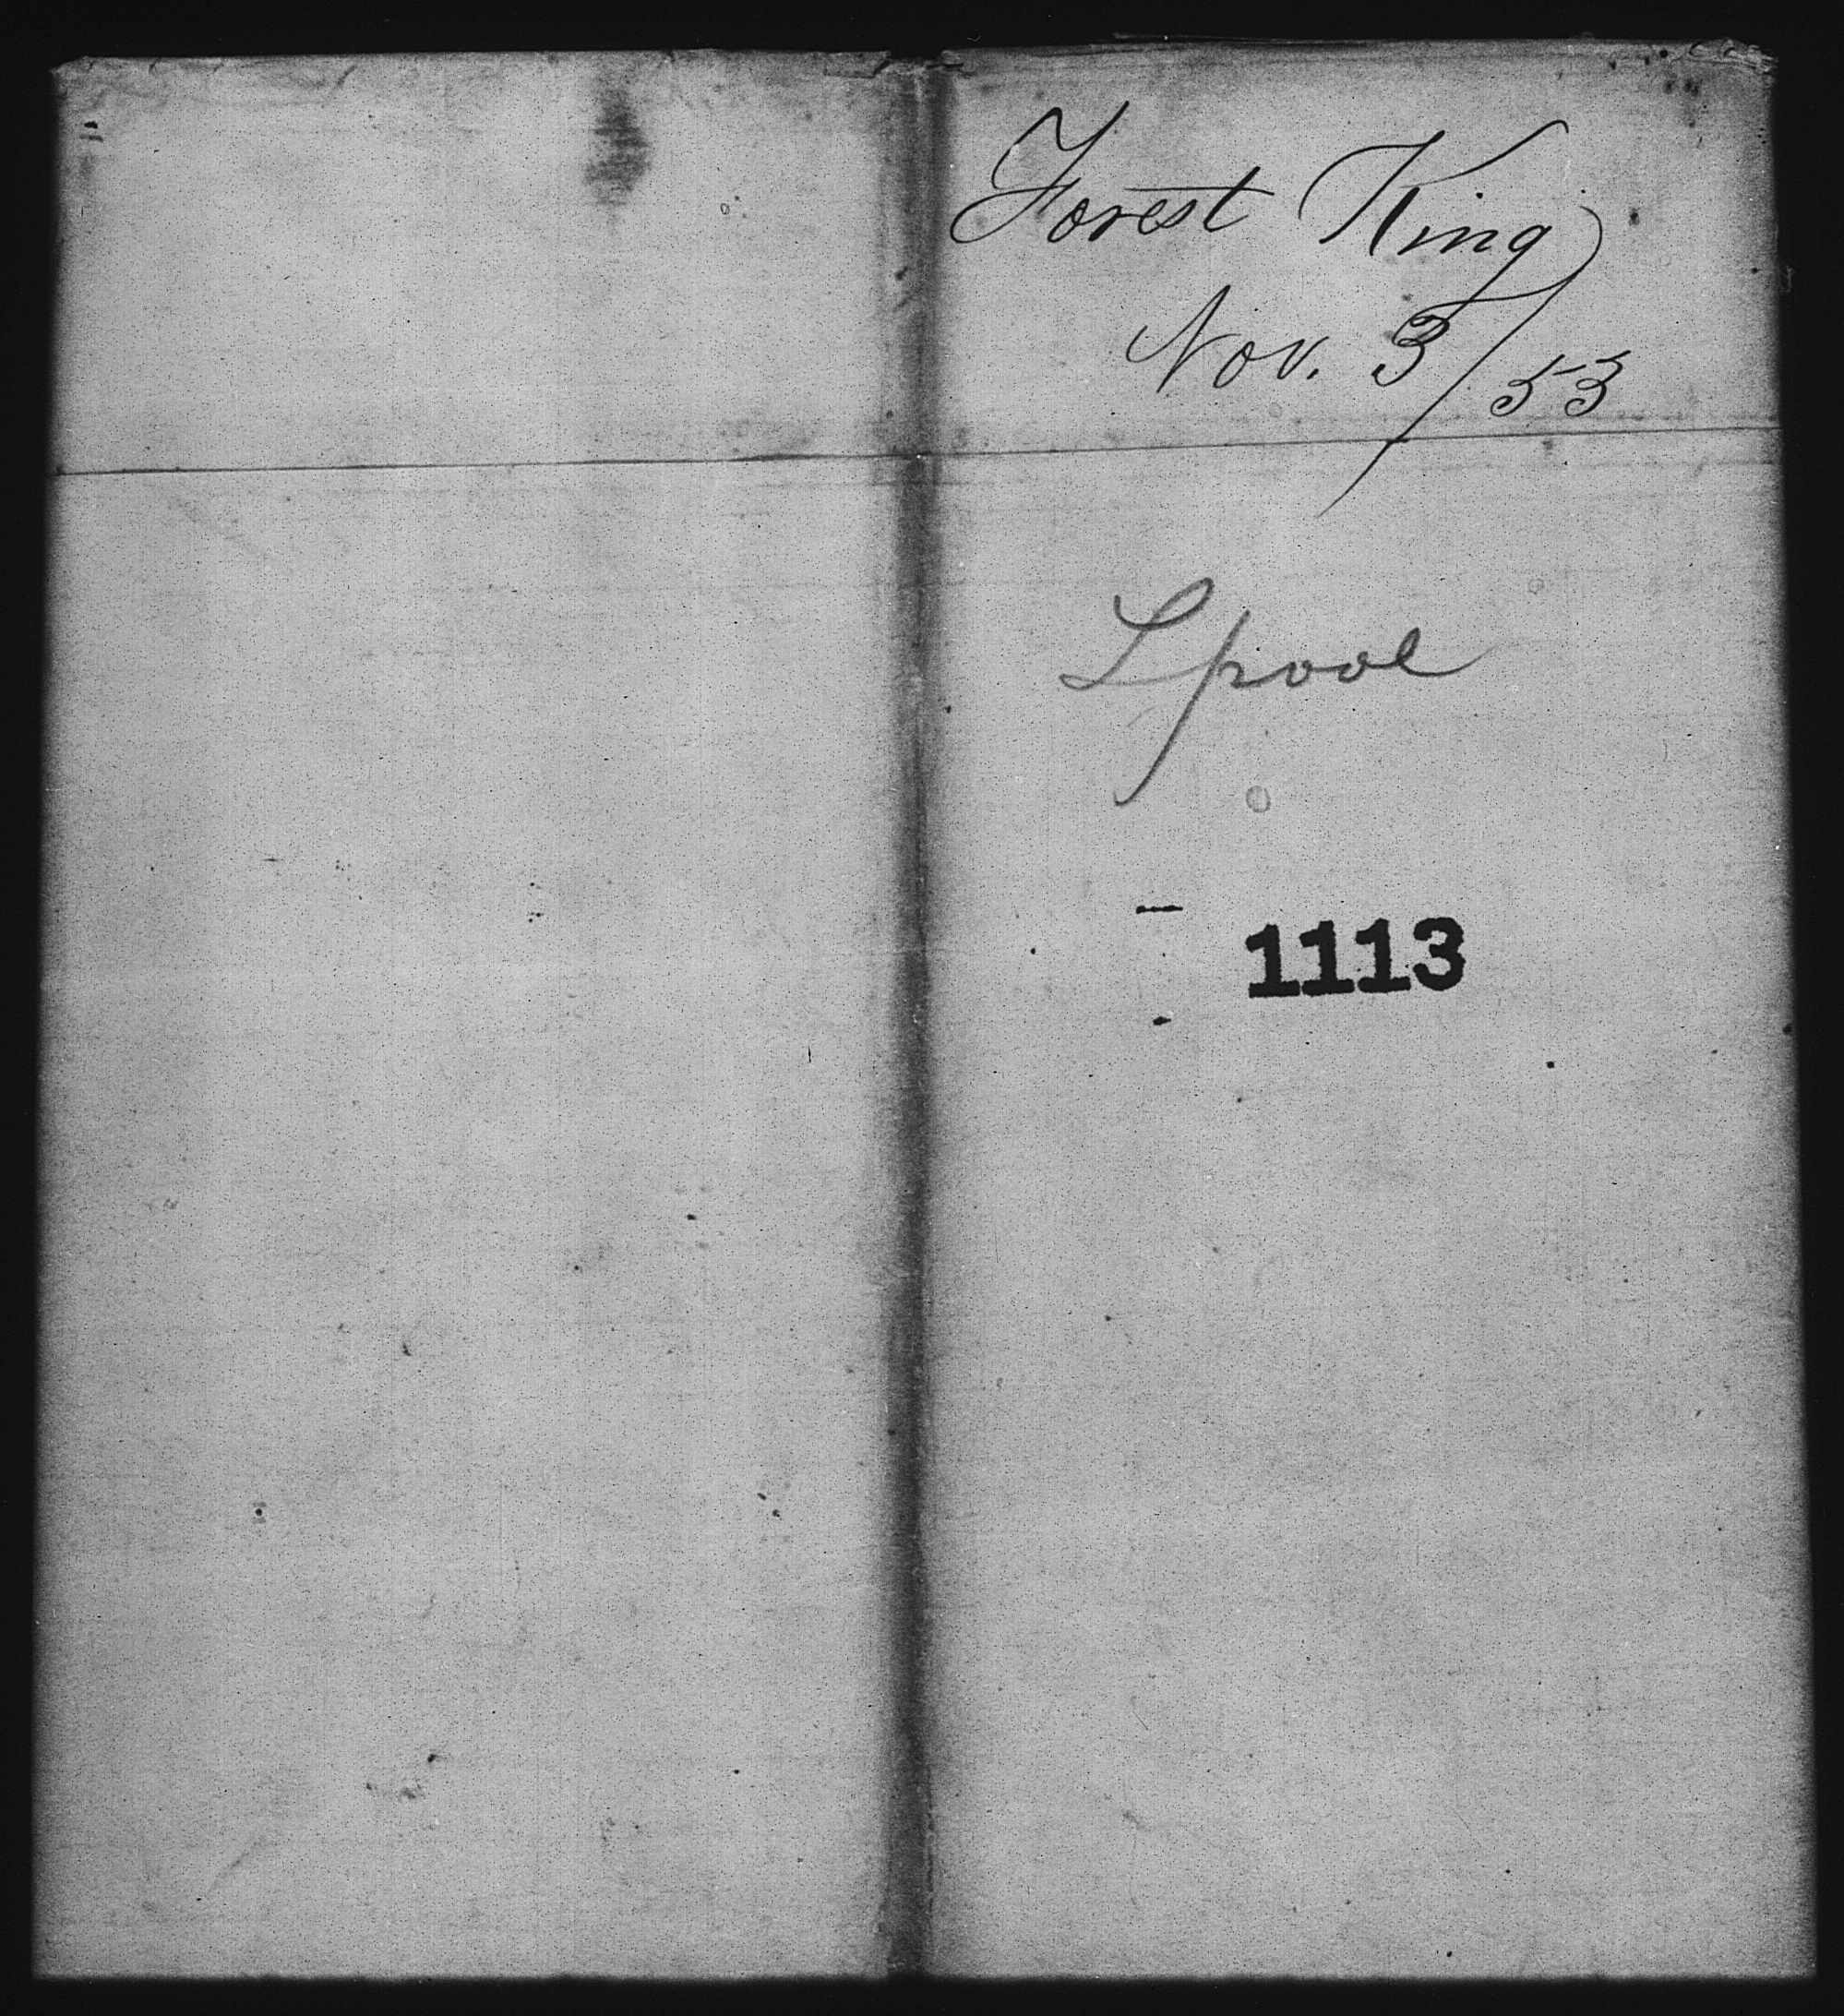 Forest King
Nov. 3/53
Lpool
1113